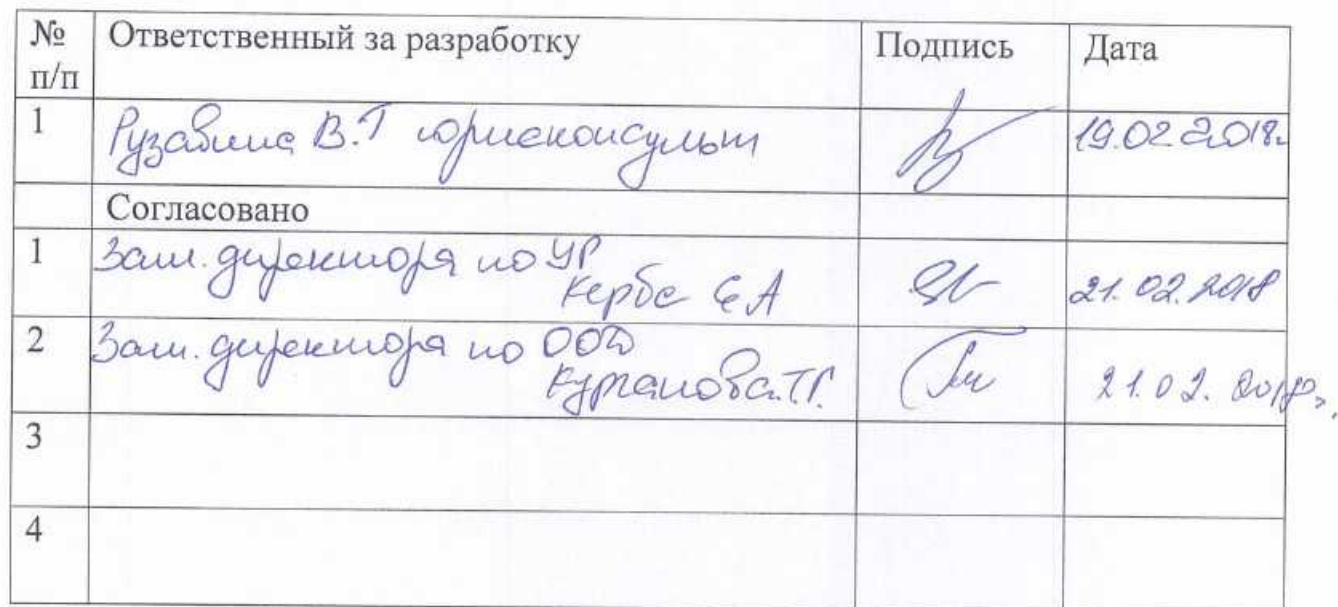 № п/п Ответственный за разработку Подпись Дата
1 Рузавина В.Г юрисконсульт 19.02 2018г
Согласовано
1 Зам. директора по УР
Кербс Е А 21.02.2018
2 Зам. директора по ООД
Курганова Т.Г. 21.02.2018г.
3
4